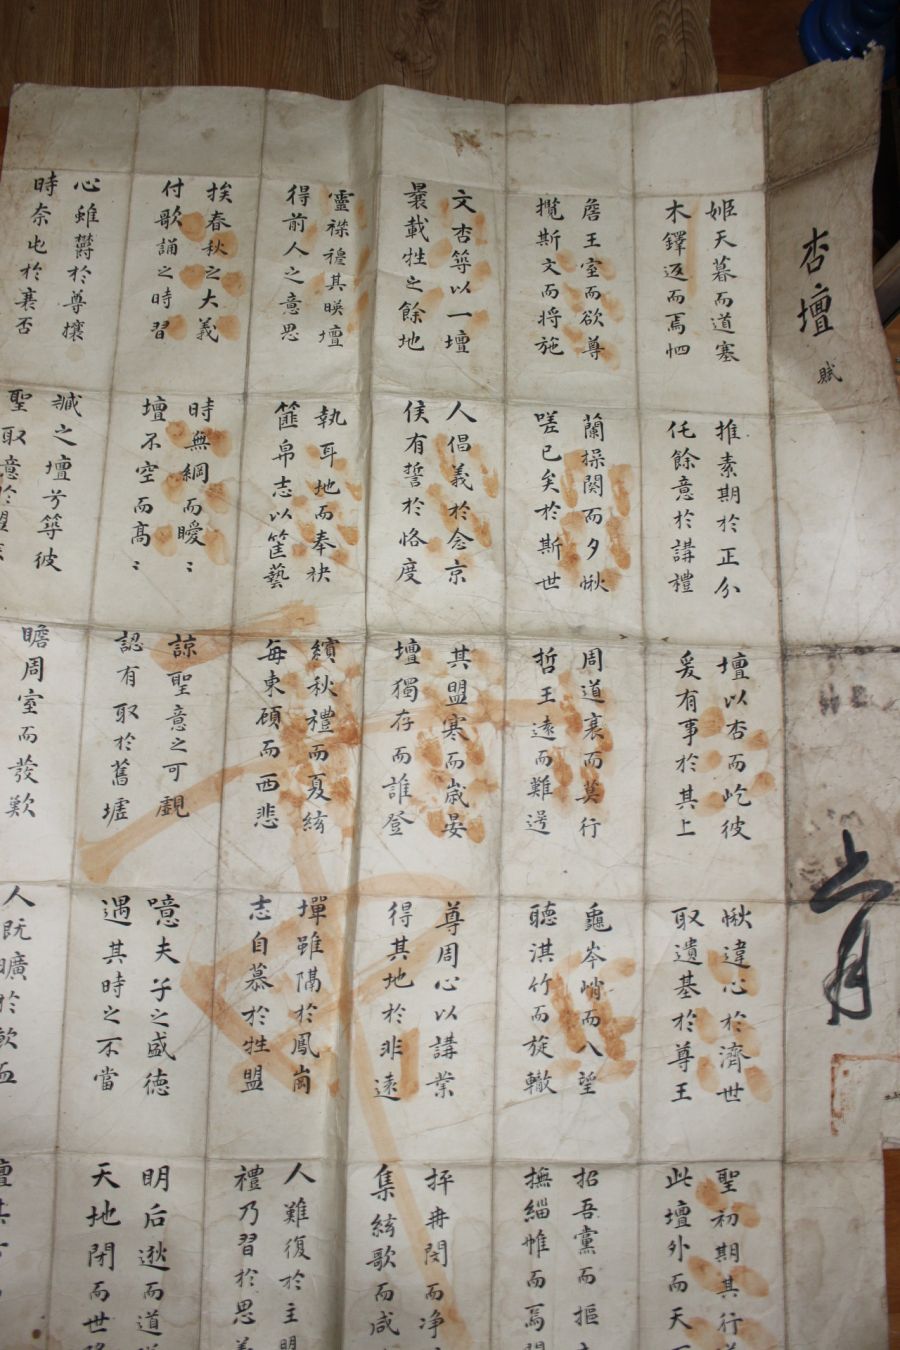 杏壇賦
姬天暮而道塞
木鐸返而焉恤
推素期於正分
仛餘意於講禮
壇以杏而屹彼
爰有事於其上
愀違心於濟世
取遺基於尊王
聖初期其行
此壇外而天
詹王室而欲尊
攬斯文而將施
蘭操闋而夕愀
嗟已矣於斯世
周道衰而莫行
哲王遠而難送
龜岑峭而入望
聽淇竹而旋轍
招吾黨而摳
撫緇帷而焉
文杏等以一壇
曩載牲之餘地
人倡義於念京
侯有誓於恪度
其盟寒而歲晏
壇獨存而誰登
尊周心以講業
得其地於非遠
冉閔而净
集絃歌而咸
靈襟穆其暎壇
得前人之意思
執耳地而奉袂
篚帛志以筐藝
繽秋禮而夏絃
每東頋而西悲
墠雖隔於鳳崗
志自慕於牲盟
人難復於主盟
禮乃習於思
挨春秋之大義
付歌誦之時習
時無綱而曖:
壇不空而髙:
諒聖意之可覰
認有取於舊墟
噫夫子之盛德
遇其時之不當
明后逖而道
天地閉而世
心雖欝於尊攘
時奈屯於衰否
臧之壇兮等彼
聖取意於盟
瞻周室而發歎
人既曠於歃血